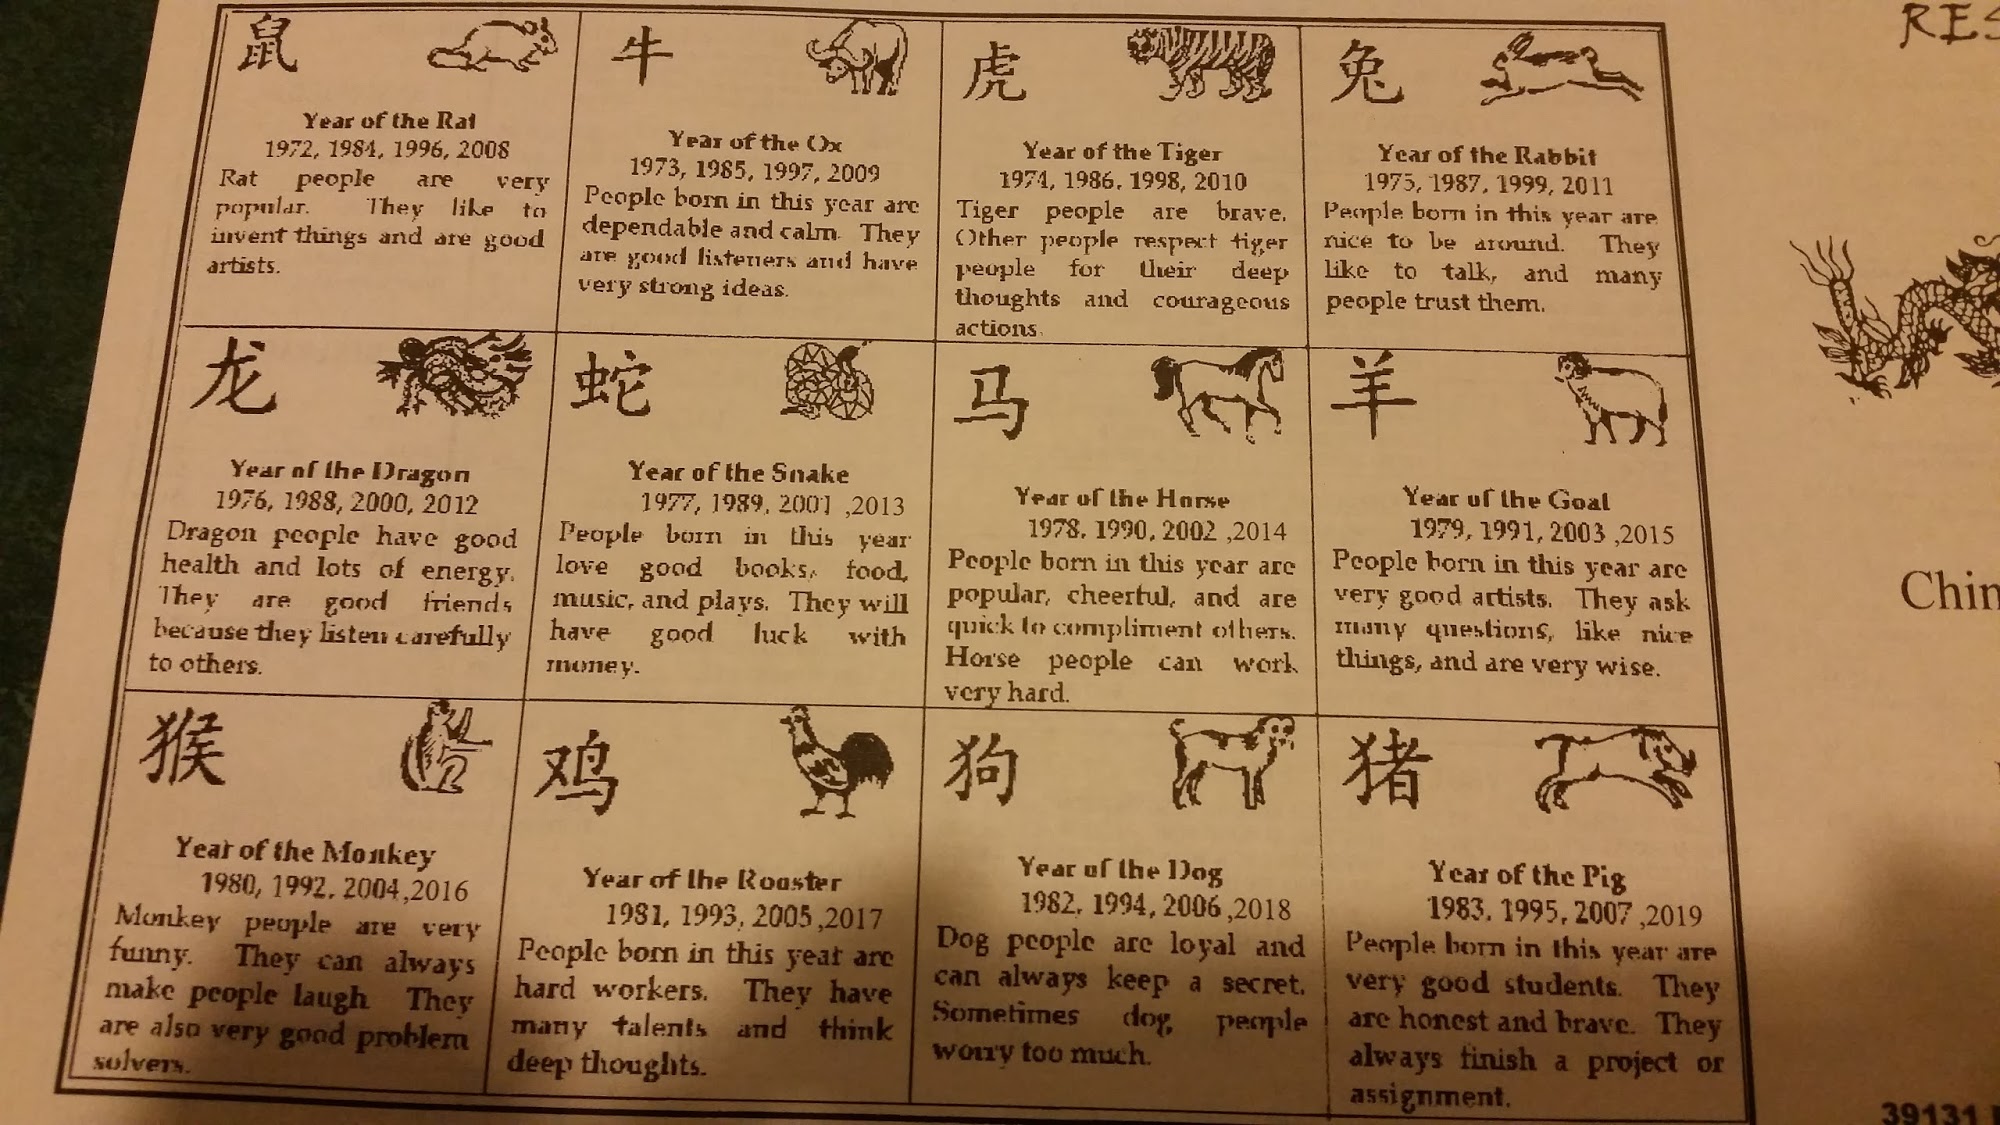 鼠
Year of the Rat
1972, 1984, 1996, 2008
Rat people are very
popular. They like to
invent things and are good
artists.
牛
Year of the Ox
1973, 1985, 1997, 2009
People born in this year are
dependable and calm. They
are good listeners and have
very strong ideas.
虎
Year of the Tiger
1974, 1986, 1998, 2010
Tiger people are brave.
Other people respect tiger
people for their deep
thoughts and courageous
actions.
兔
Year of the Rabbit
1975, 1987, 1999, 2011
People born in this year are
nice to be around. They
like to talk, and many
people trust them.
龙
Year of the Dragon
1976, 1988, 2000, 2012
Dragon people have good
health and lots of energy.
They are good friends
because they listen carefully
to others.
蛇
Year of the Snake
1977, 1989, 2001 ,2013
People born in this year
love good books, food,
music, and plays. They will
have good luck with
money.
马
Year of the Horse
1978, 1990, 2002 ,2014
People born in this year are
popular, cheerful, and are
quick to compliment others.
Horse people can work
very hard.
羊
Year of the Goat
1979, 1991, 2003 ,2015
People born in this year are
very good artists. They ask
many questions, like nice
things, and are very wise.
猴
Year of the Monkey
1980, 1992, 2004 ,2016
Monkey people are very
funny. They can always
make people laugh. They
are also very good problem
solvers.
鸡
Year of the Rooster
1981, 1993, 2005 ,2017
People born in this year are
hard workers. They have
many talents and think
deep thoughts.
狗
Year of the Dog
1982, 1994, 2006 ,2018
Dog people are loyal and
can always keep a secret.
Sometimes dog people
worry too much.
猪
Year of the Pig
1983, 1995, 2007 ,2019
People born in this year are
very good students. They
are honest and brave. They
always finish a project or
assignment.
RES
Chin
39131